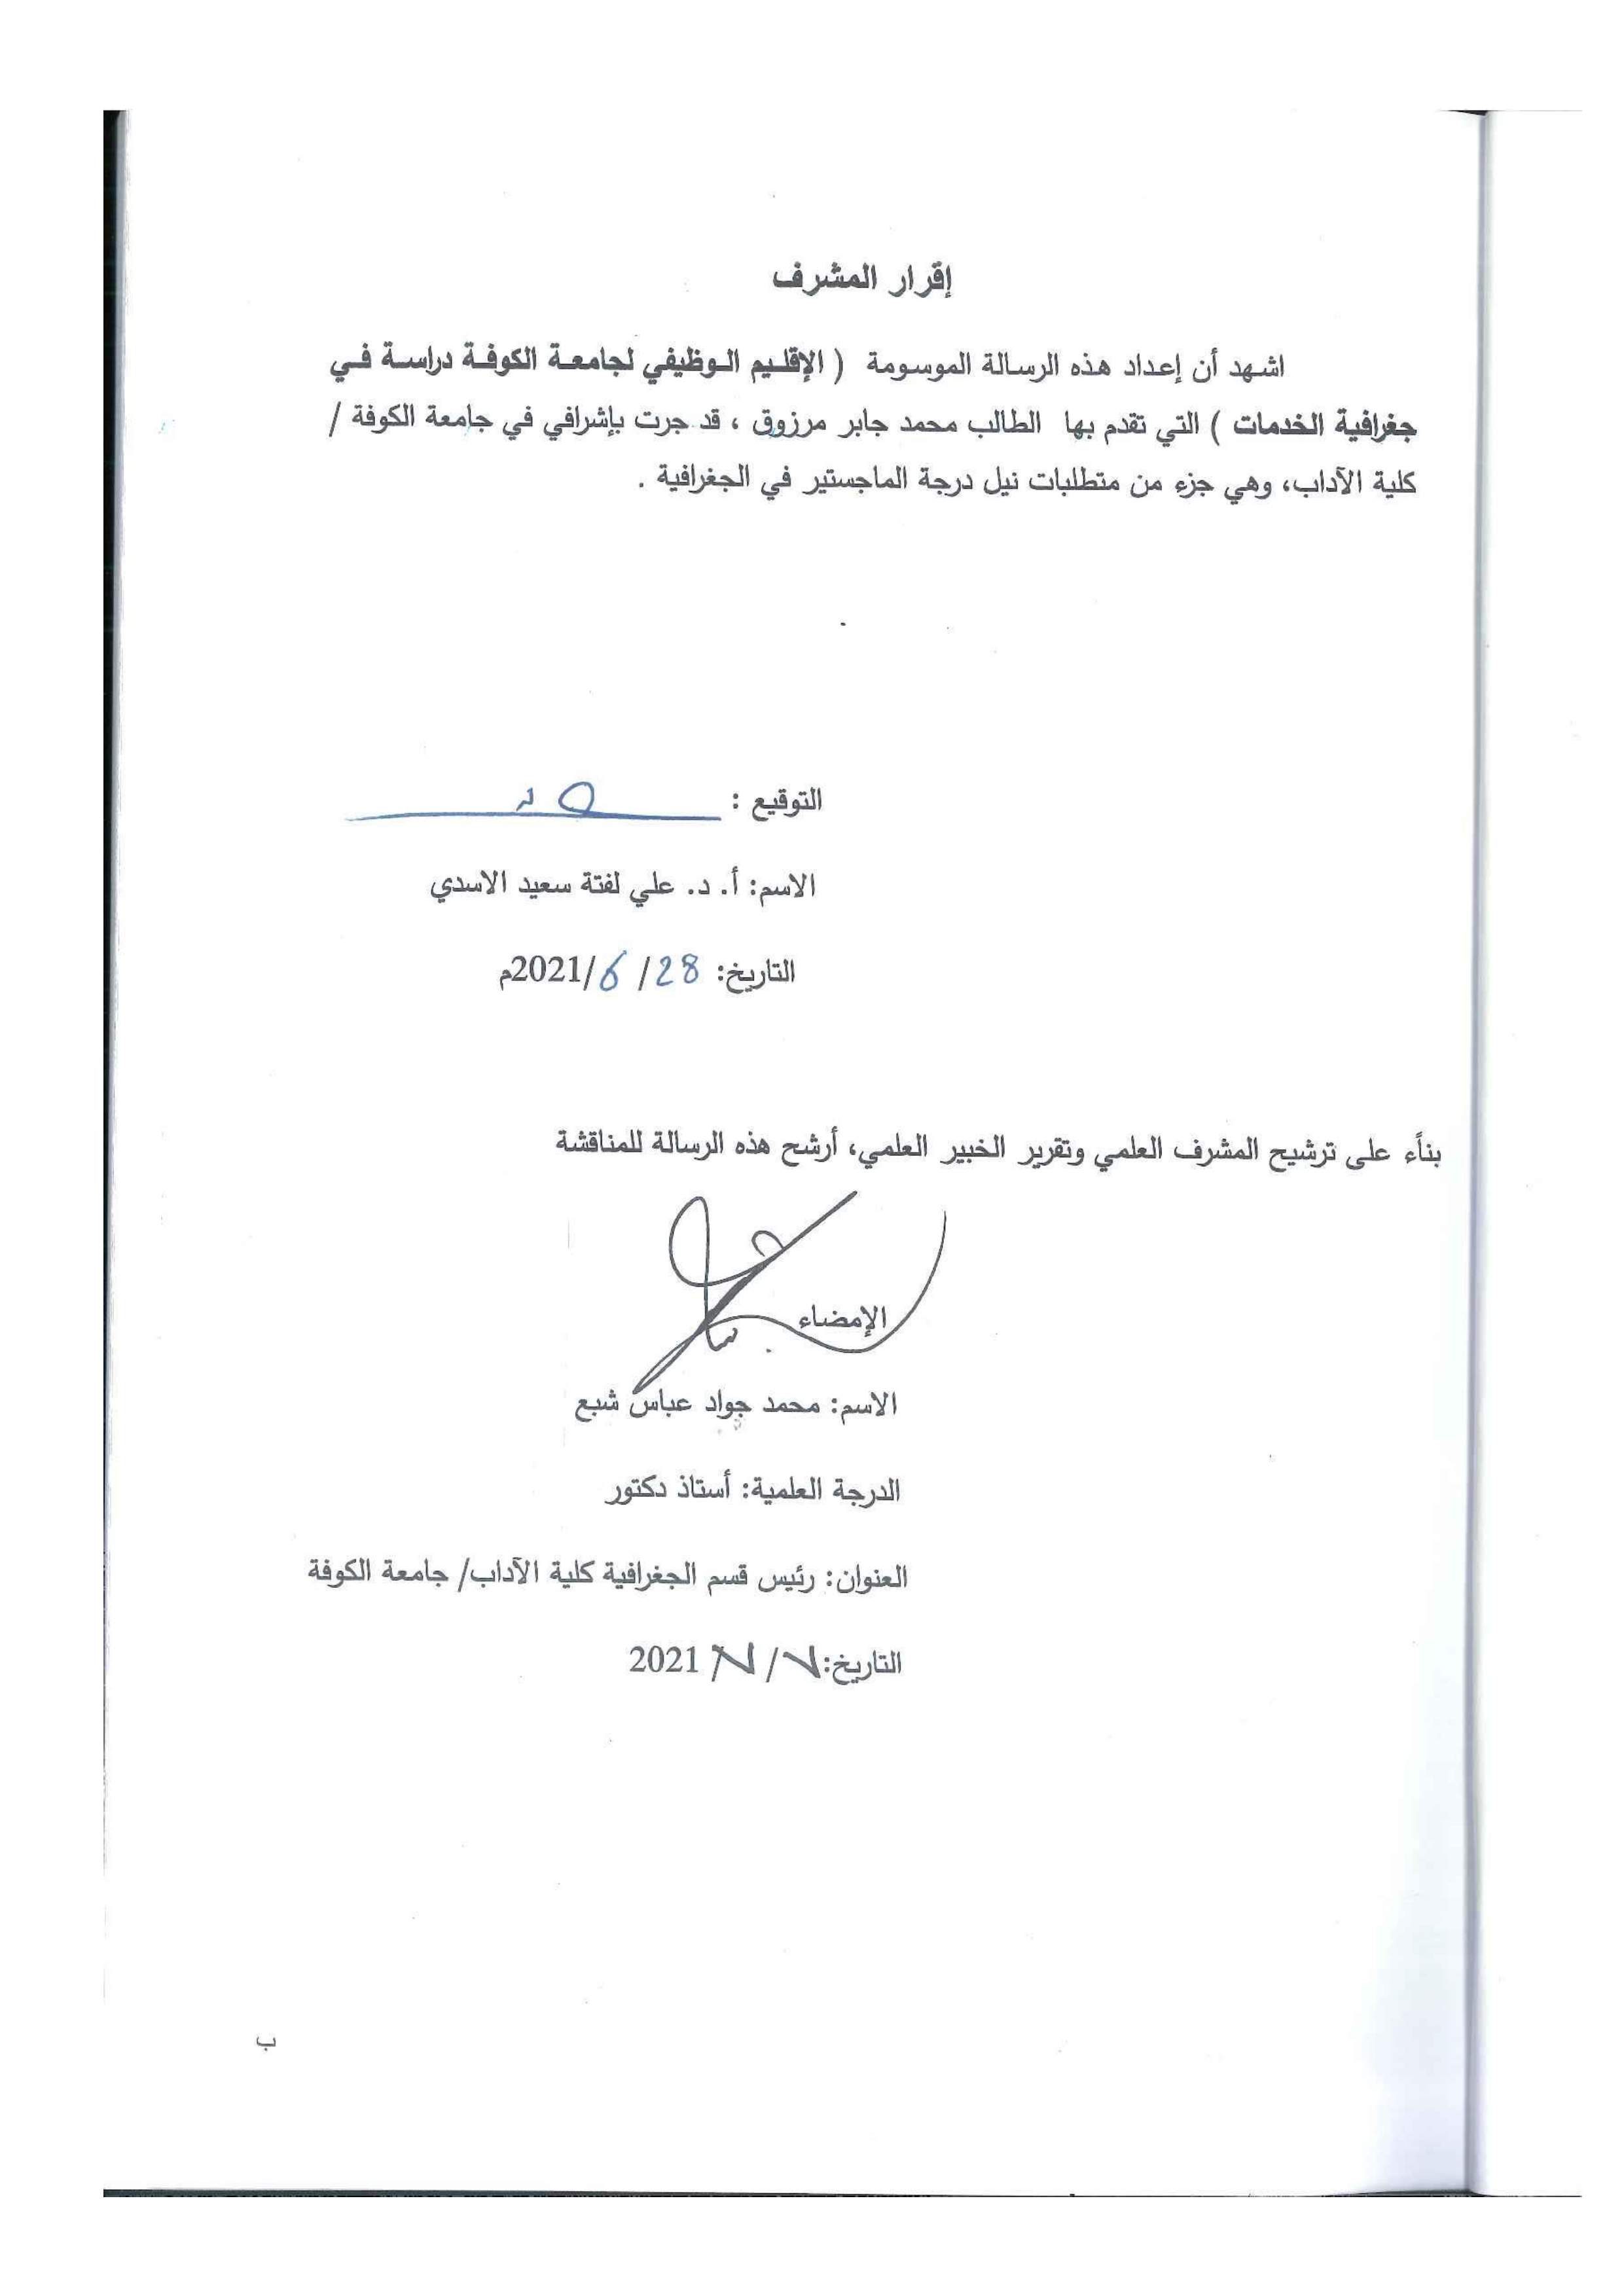 إقرار المشرف
اشهد أن إعداد هذه الرسالة الموسومة ( الإقليم الوظيفي لجامعة الكوفة دراسة في
جغرافية الخدمات ) التي تقدم بها الطالب محمد جابر مرزوق ، قد جرت بإشرافي في جامعة الكوفة /
كلية الآداب، وهي جزء من متطلبات نيل درجة الماجستير في الجغرافية .
التوقيع :
الاسم: أ. د. علي لفتة سعيد الاسدي
التاريخ: 28 / 6 /2021م
بناًء على ترشيح المشرف العلمي وتقرير الخبير العلمي، أرشح هذه الرسالة للمناقشة
الإمضاء
الاسم: محمد جواد عباس شبع
الدرجة العلمية: أستاذ دكتور
العنوان: رئيس قسم الجغرافية كلية الآداب/ جامعة الكوفة
التاريخ: / / 2021
ب